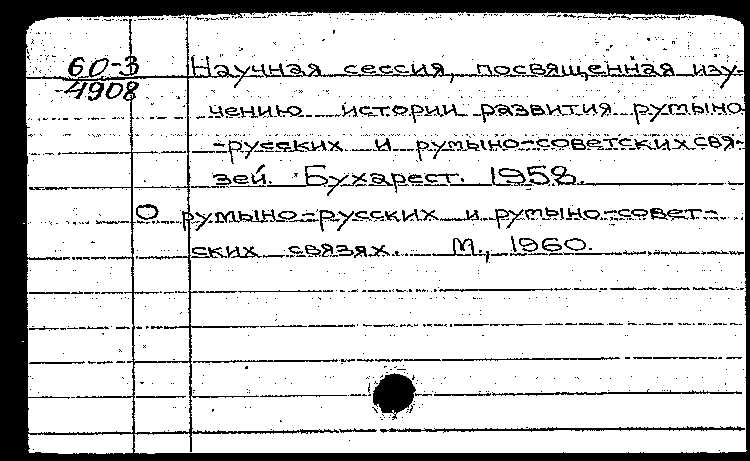 60-3 Научная сессия, посвященная изу-
4908
чению истории развития румыно
-русских и румыно-советских свя-
зей. Бухарест. 1958.
О румыно-русских и румыно-совет-
ских связях. М., 1960.